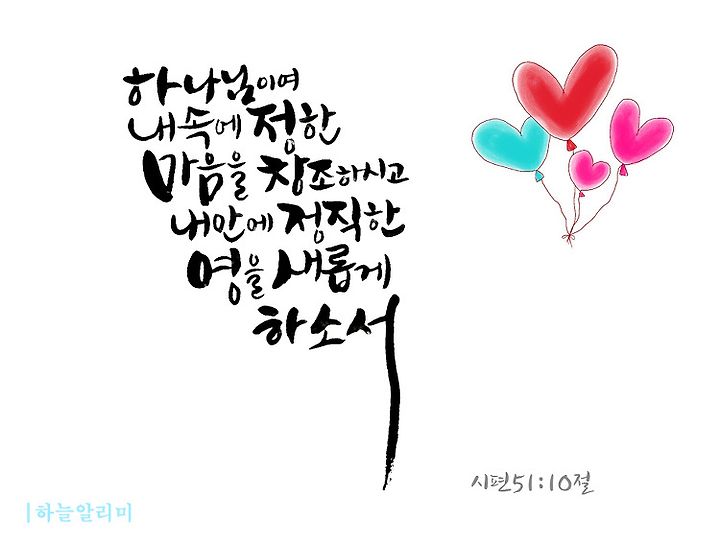 하나님이여
내 속에 정한
마음을 창조하시고
내 안에 정직한
영을 새롭게
하소서
시편51:10절
|하늘알리미